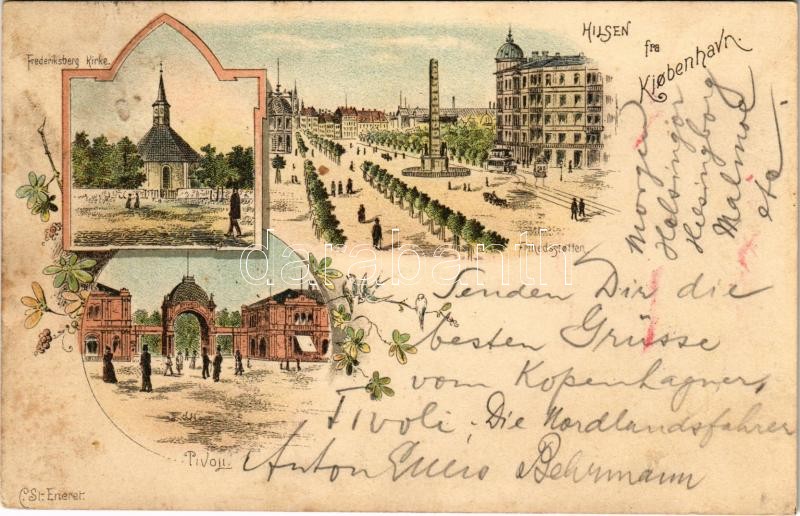 Frederiksberg Kirke.
HILSEN
fra
Kjøbenhavn.
Frihedsstøtten
Tivoli.
C. St. Eneret.
Morgen
Helsingör
Helsingborg
Malmoe
etc.
Senden Dir die
besten Grüsse
vom Kopenhagner
Tivoli. Die Nordlandsfahrer
Anton Behrmann
darabanth